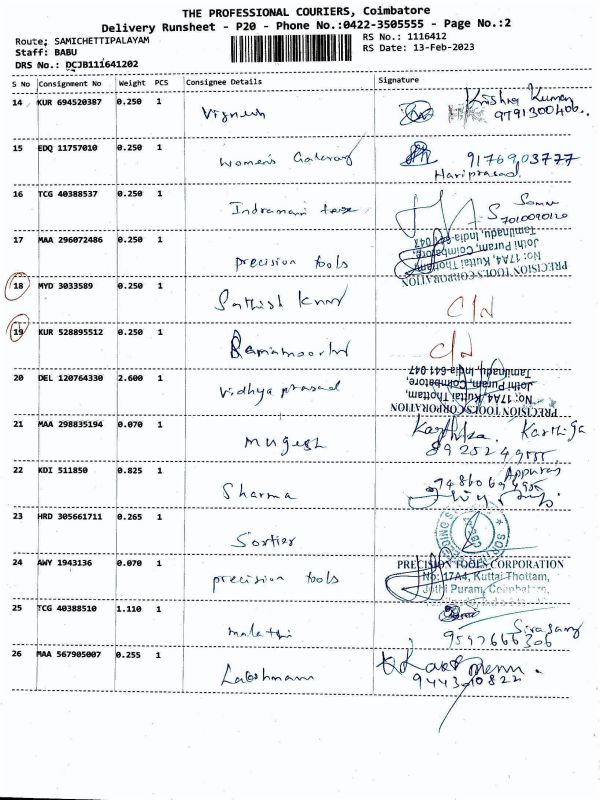 THE PROFESSIONAL COURIERS, Coimbatore
Delivery Runsheet - P20 - Phone No.:0422-3505555 - Page No.:2
Route: SAMICHETTIPALAYAM
RS No.: 1116412
Staff: BABU
RS Date: 13-Feb-2023
DRS No.: DCJB111641202
S No Consignment No Weight PCS Consignee Details Signature
14 KUR 694520387 0.250 1 Vignesh Krishna Kumar
15 EDQ 11757010 0.250 1 Women's 9176903777
Hariprasad
16 TCG 40388537 0.250 1 Indramani
7010090120
17 MAA 296072486 0.250 1 precision tools
PRECISION TOOLS CORPORATION
No: 17A4, Kuttai Thottam,
Jothi Puram, Coimbatore,
Tamilnadu, India-641 047
18 MYD 3033589 0.250 1 Sathish Kumar C/N
19 KUR 528895512 0.250 1 Ramamoorthi C/N
20 DEL 120764330 2.600 1 Vidhya prasad
PRECISION TOOLS CORPORATION
No: 17A4, Kuttai Thottam,
Jothi Puram, Coimbatore,
Tamilnadu, India-641 047
21 MAA 298835194 0.070 1 Mugesh Karthika Karthiga
22 KDI 511850 0.825 1 Sharma
23 HRD 305661711 0.265 1 Sortier
24 AWY 1943136 0.070 1 precision tools
PRECISION TOOLS CORPORATION
No: 17A4, Kuttai Thottam,
Jothi Puram, Coimbatore,
25 TCG 40388510 1.110 1 malathi
9597666306
26 MAA 567905007 0.255 1 Lakshmanan